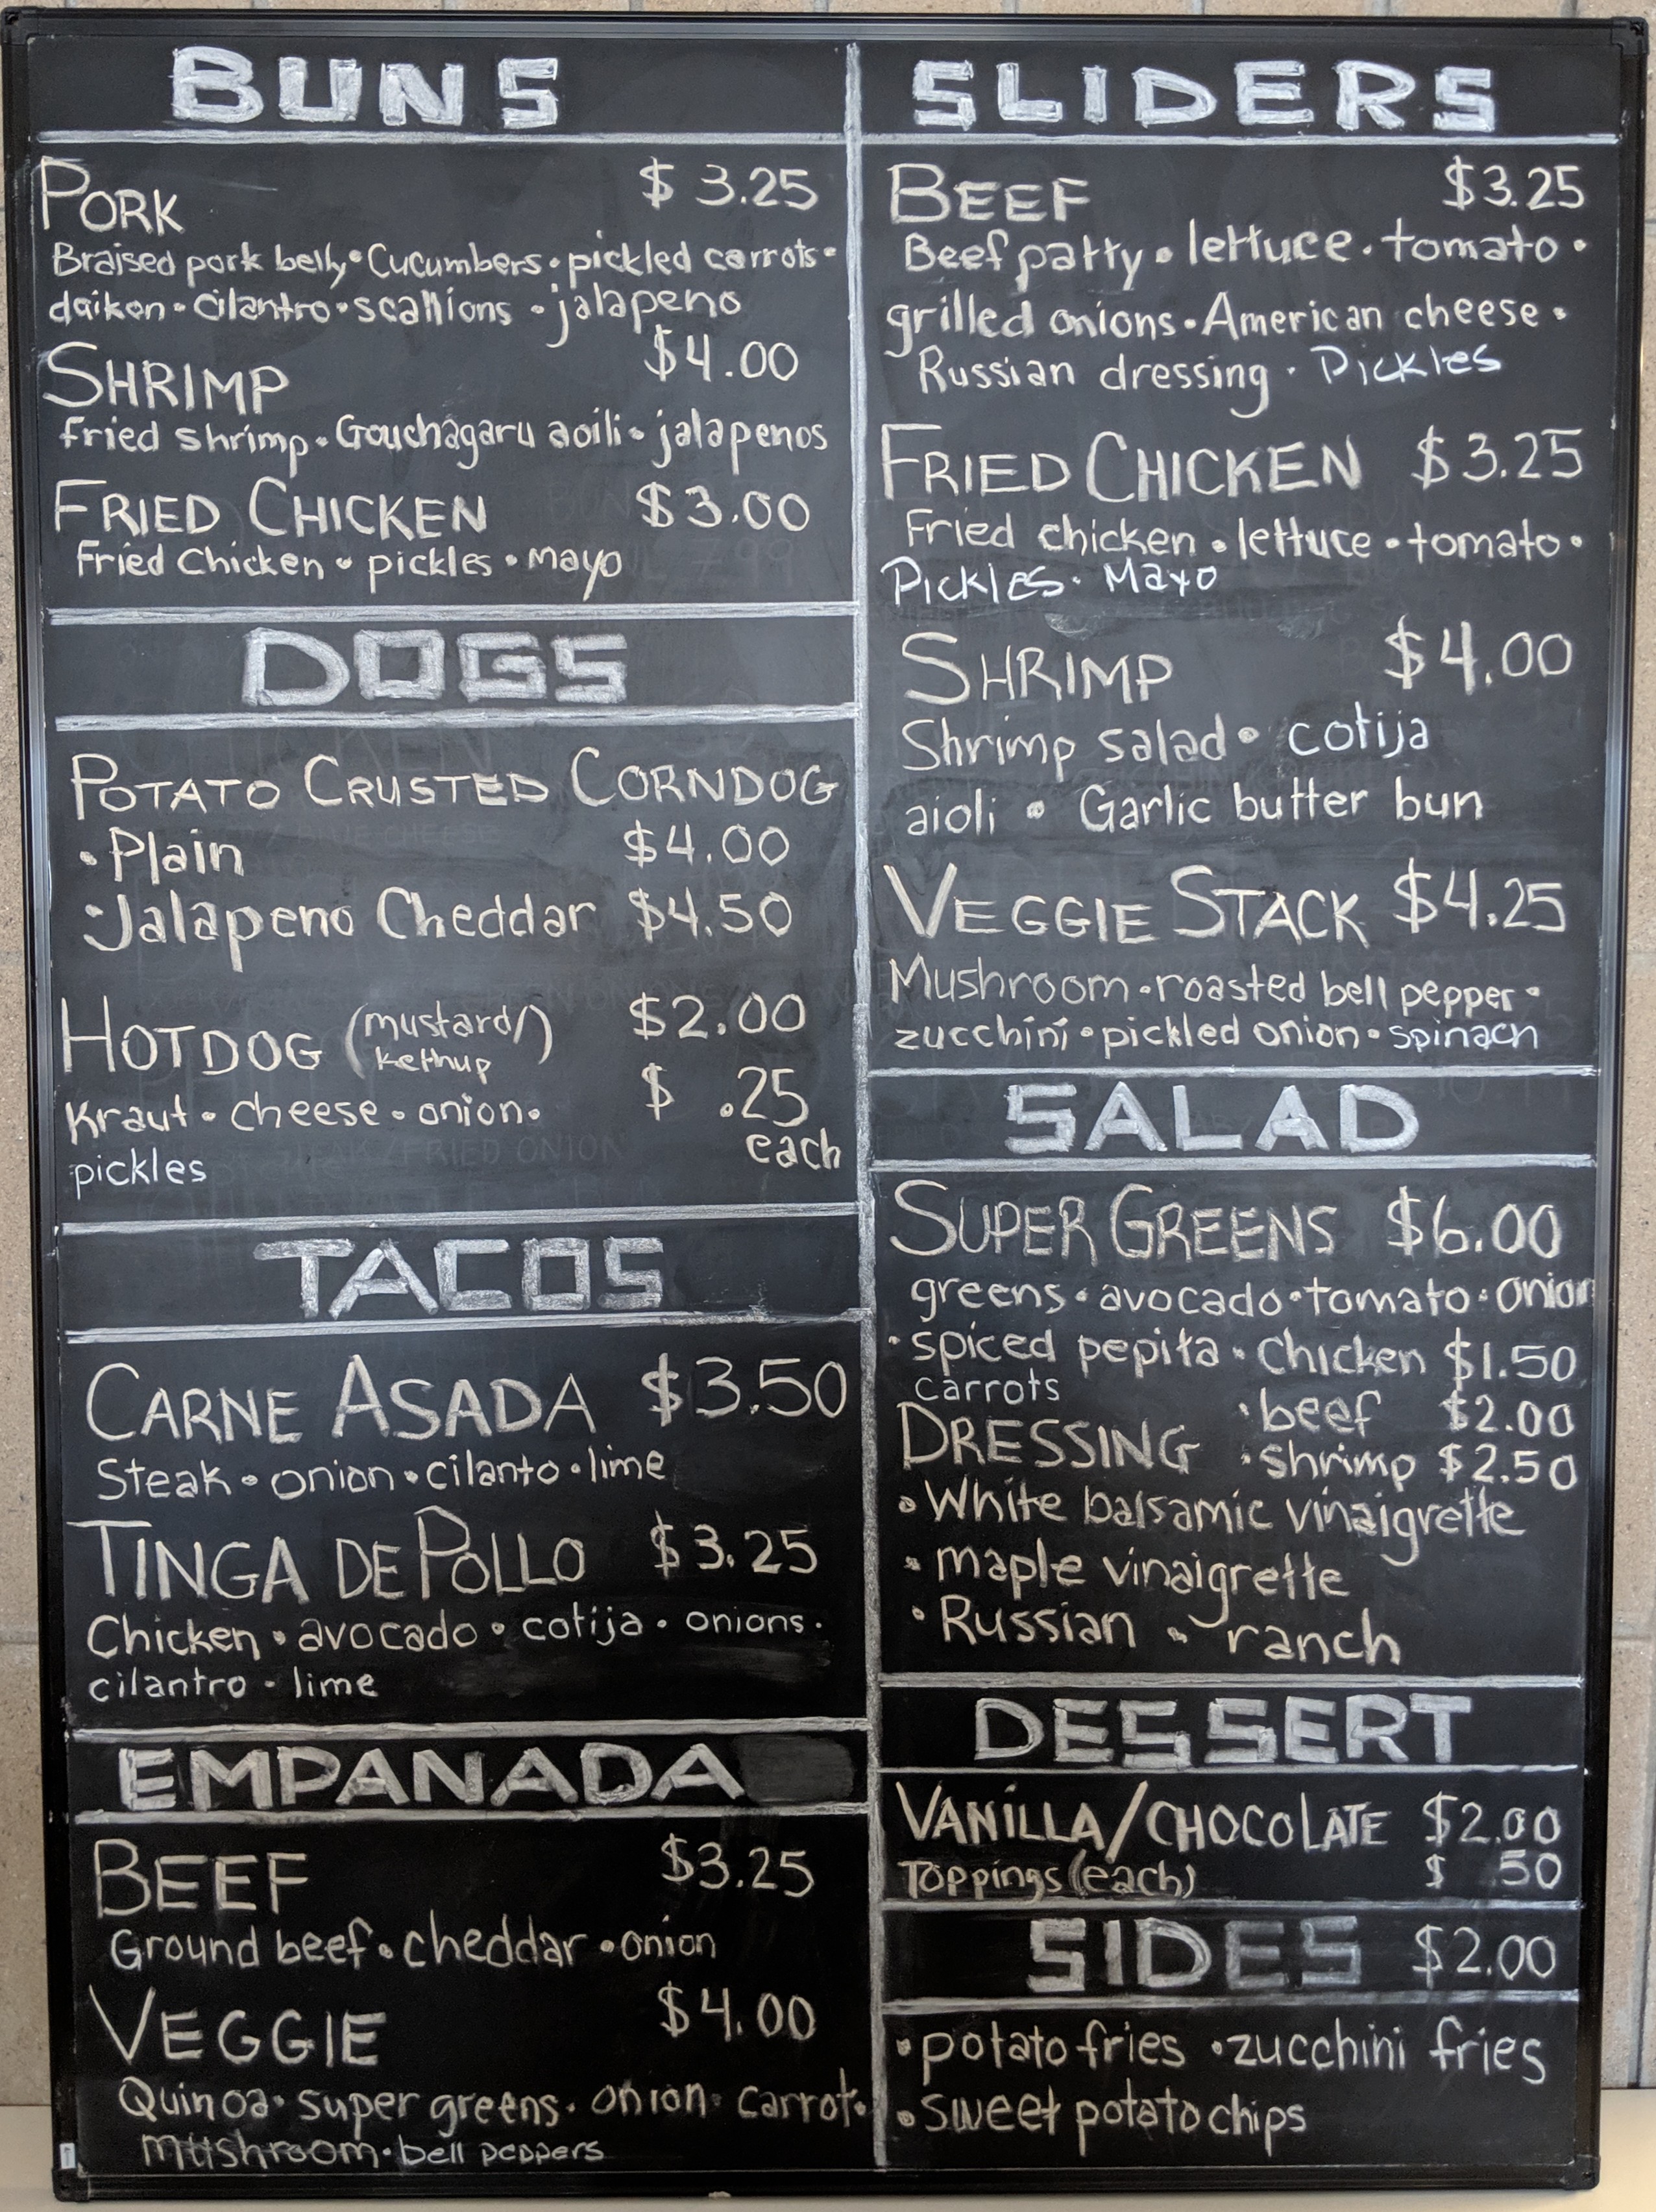 BUNS
PORK $3.25
Braised pork belly • Cucumbers • pickled carrots •
daikon • cilantro • scallions • jalapeno
SHRIMP $4.00
fried shrimp • Gouchagaru aoili • jalapenos
FRIED CHICKEN $3.00
Fried Chicken • pickles • mayo
DOGS
POTATO CRUSTED CORNDOG
• Plain $4.00
• Jalapeno Cheddar $4.50
HOTDOG (mustard/ $2.00
ketchup)
Kraut • cheese • onion • $ .25
each
pickles
TACOS
CARNE ASADA $3.50
Steak • onion • cilanto • lime
TINGA DE POLLO $3.25
Chicken • avocado • cotija • onions •
cilantro • lime
EMPANADA
BEEF $3.25
Ground beef • cheddar • onion
VEGGIE $4.00
Quinoa • super greens • onion • carrot •
mushroom • bell peppers
SLIDERS
BEEF $3.25
Beef patty • lettuce • tomato •
grilled onions • American cheese •
Russian dressing • Pickles
FRIED CHICKEN $3.25
Fried chicken • lettuce • tomato •
Pickles • Mayo
SHRIMP $4.00
Shrimp salad • cotija
aioli • Garlic butter bun
VEGGIE STACK $4.25
Mushroom • roasted bell pepper •
zucchini • pickled onion • spinach
SALAD
SUPER GREENS $6.00
greens • avocado • tomato • onion
• spiced pepita • Chicken $1.50
carrots
• beef $2.00
DRESSING • shrimp $2.50
• White balsamic vinaigrette
• maple vinaigrette
• Russian • ranch
DESSERT
VANILLA/CHOCOLATE $2.00
Toppings (each) $ 50
SIDES $2.00
• potato fries • zucchini fries
• sweet potato chips